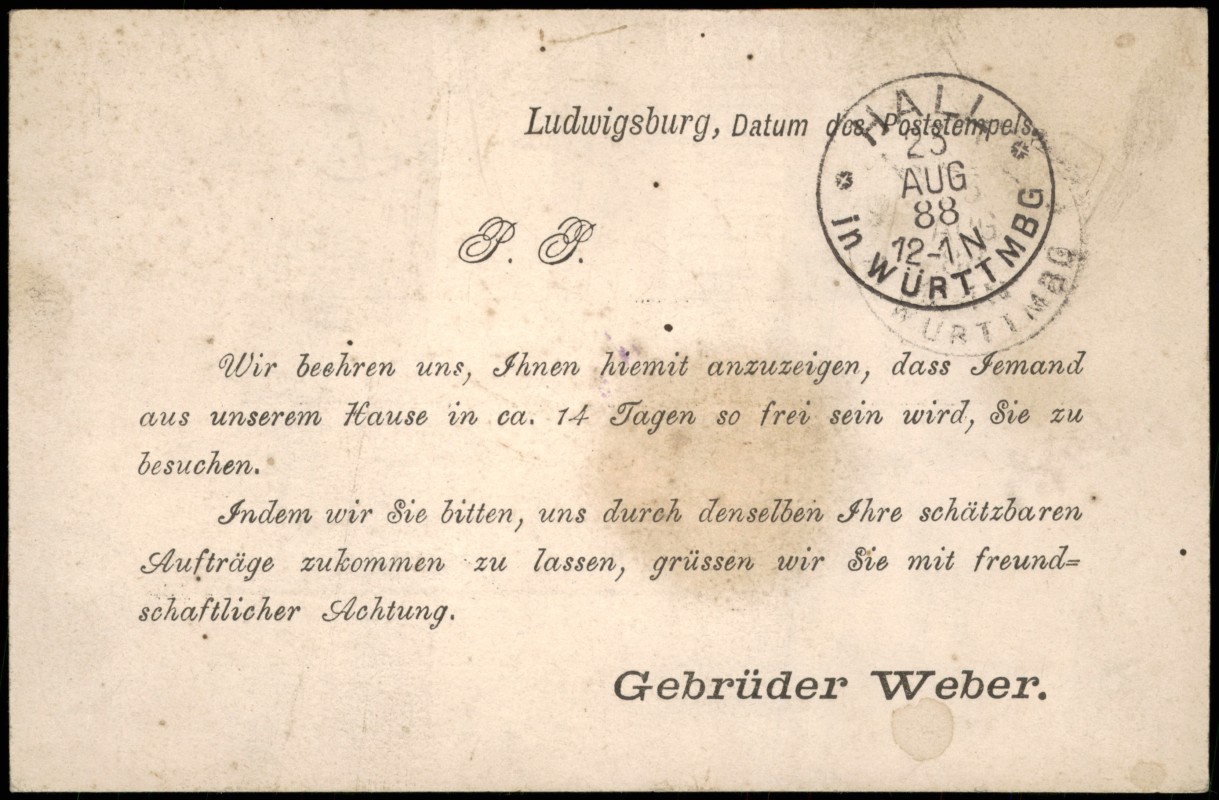 Ludwigsburg, Datum des Poststempels.
HALL
25
AUG
88
12-1N
in WÜRTTMBG
P. P.
Wir beehren uns, Ihnen hiemit anzuzeigen, dass Jemand
aus unserem Hause in ca. 14 Tagen so frei sein wird, Sie zu
besuchen.
Indem wir Sie bitten, uns durch denselben Ihre schätzbaren
Aufträge zukommen zu lassen, grüssen wir Sie mit freund=
schaftlicher Achtung.
Gebrüder Weber.